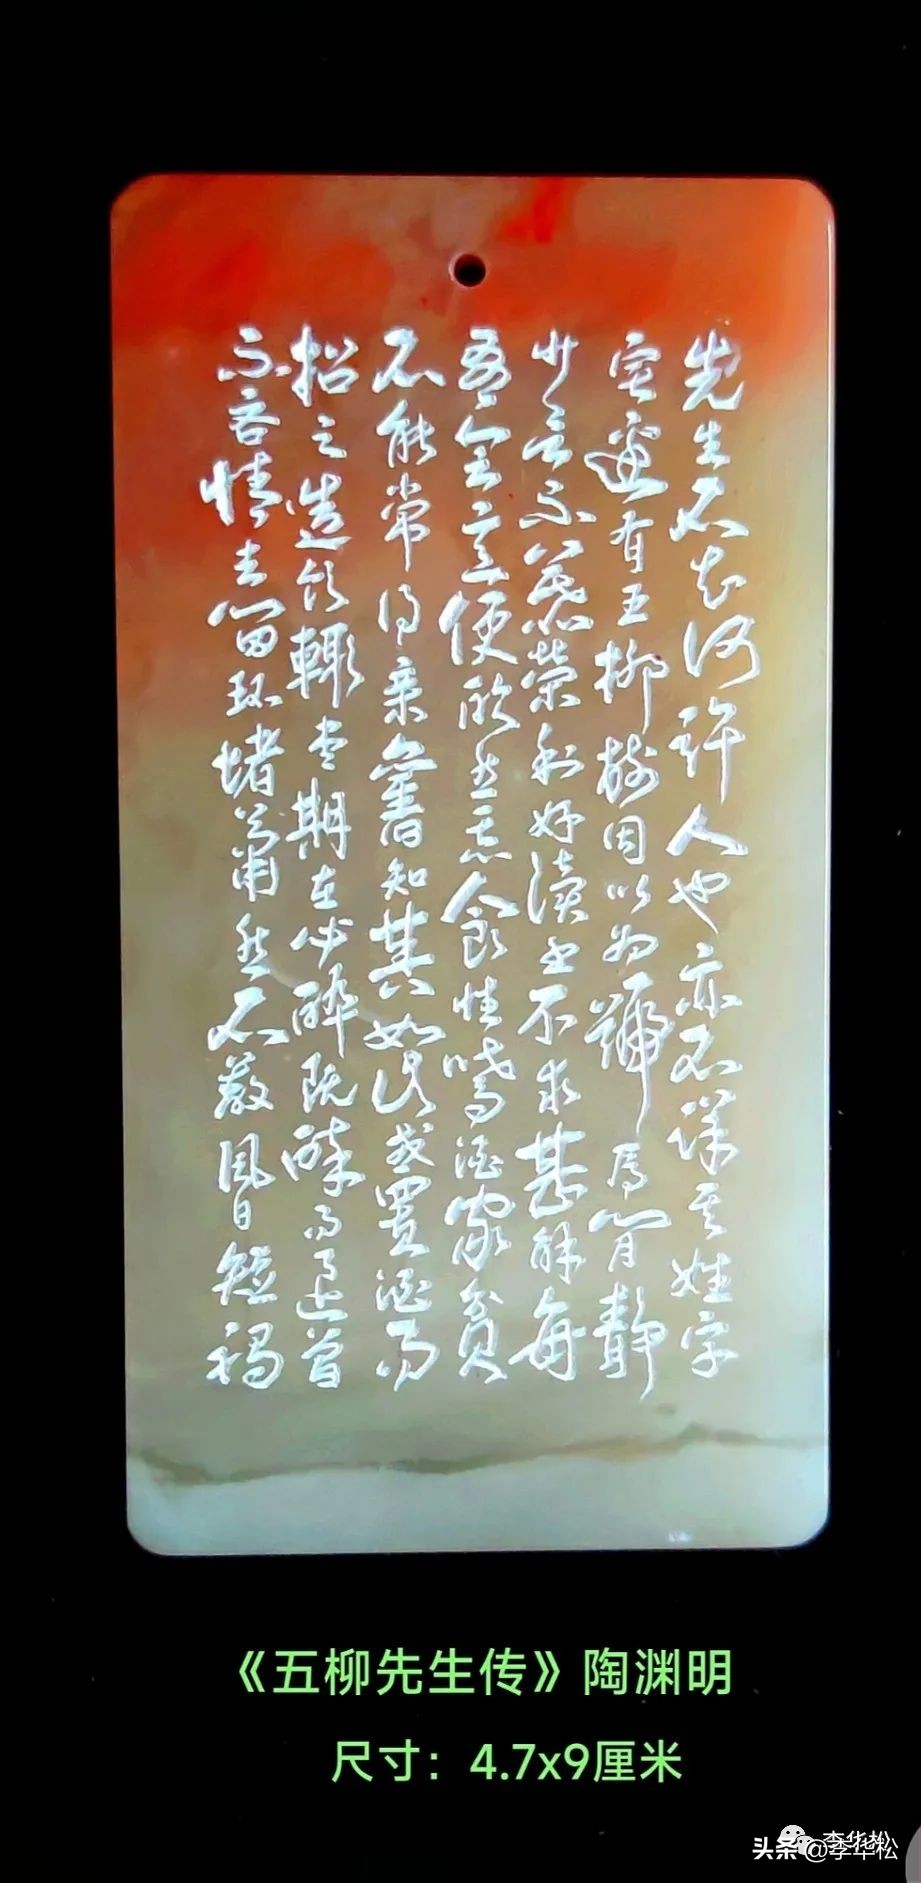 先生不知何許人也亦不詳其姓字
宅邊有五柳樹因以為號焉閒靜
少言不慕榮利好讀書不求甚解每
有會意便欣然忘食性嗜酒家貧
不能常得親舊知其如此或置酒而
招之造飲輒盡期在必醉既醉而退曾
不吝情去留環堵蕭然不蔽風日短褐
《五柳先生传》陶渊明
尺寸：4.7x9厘米
李华松
头条@李华松